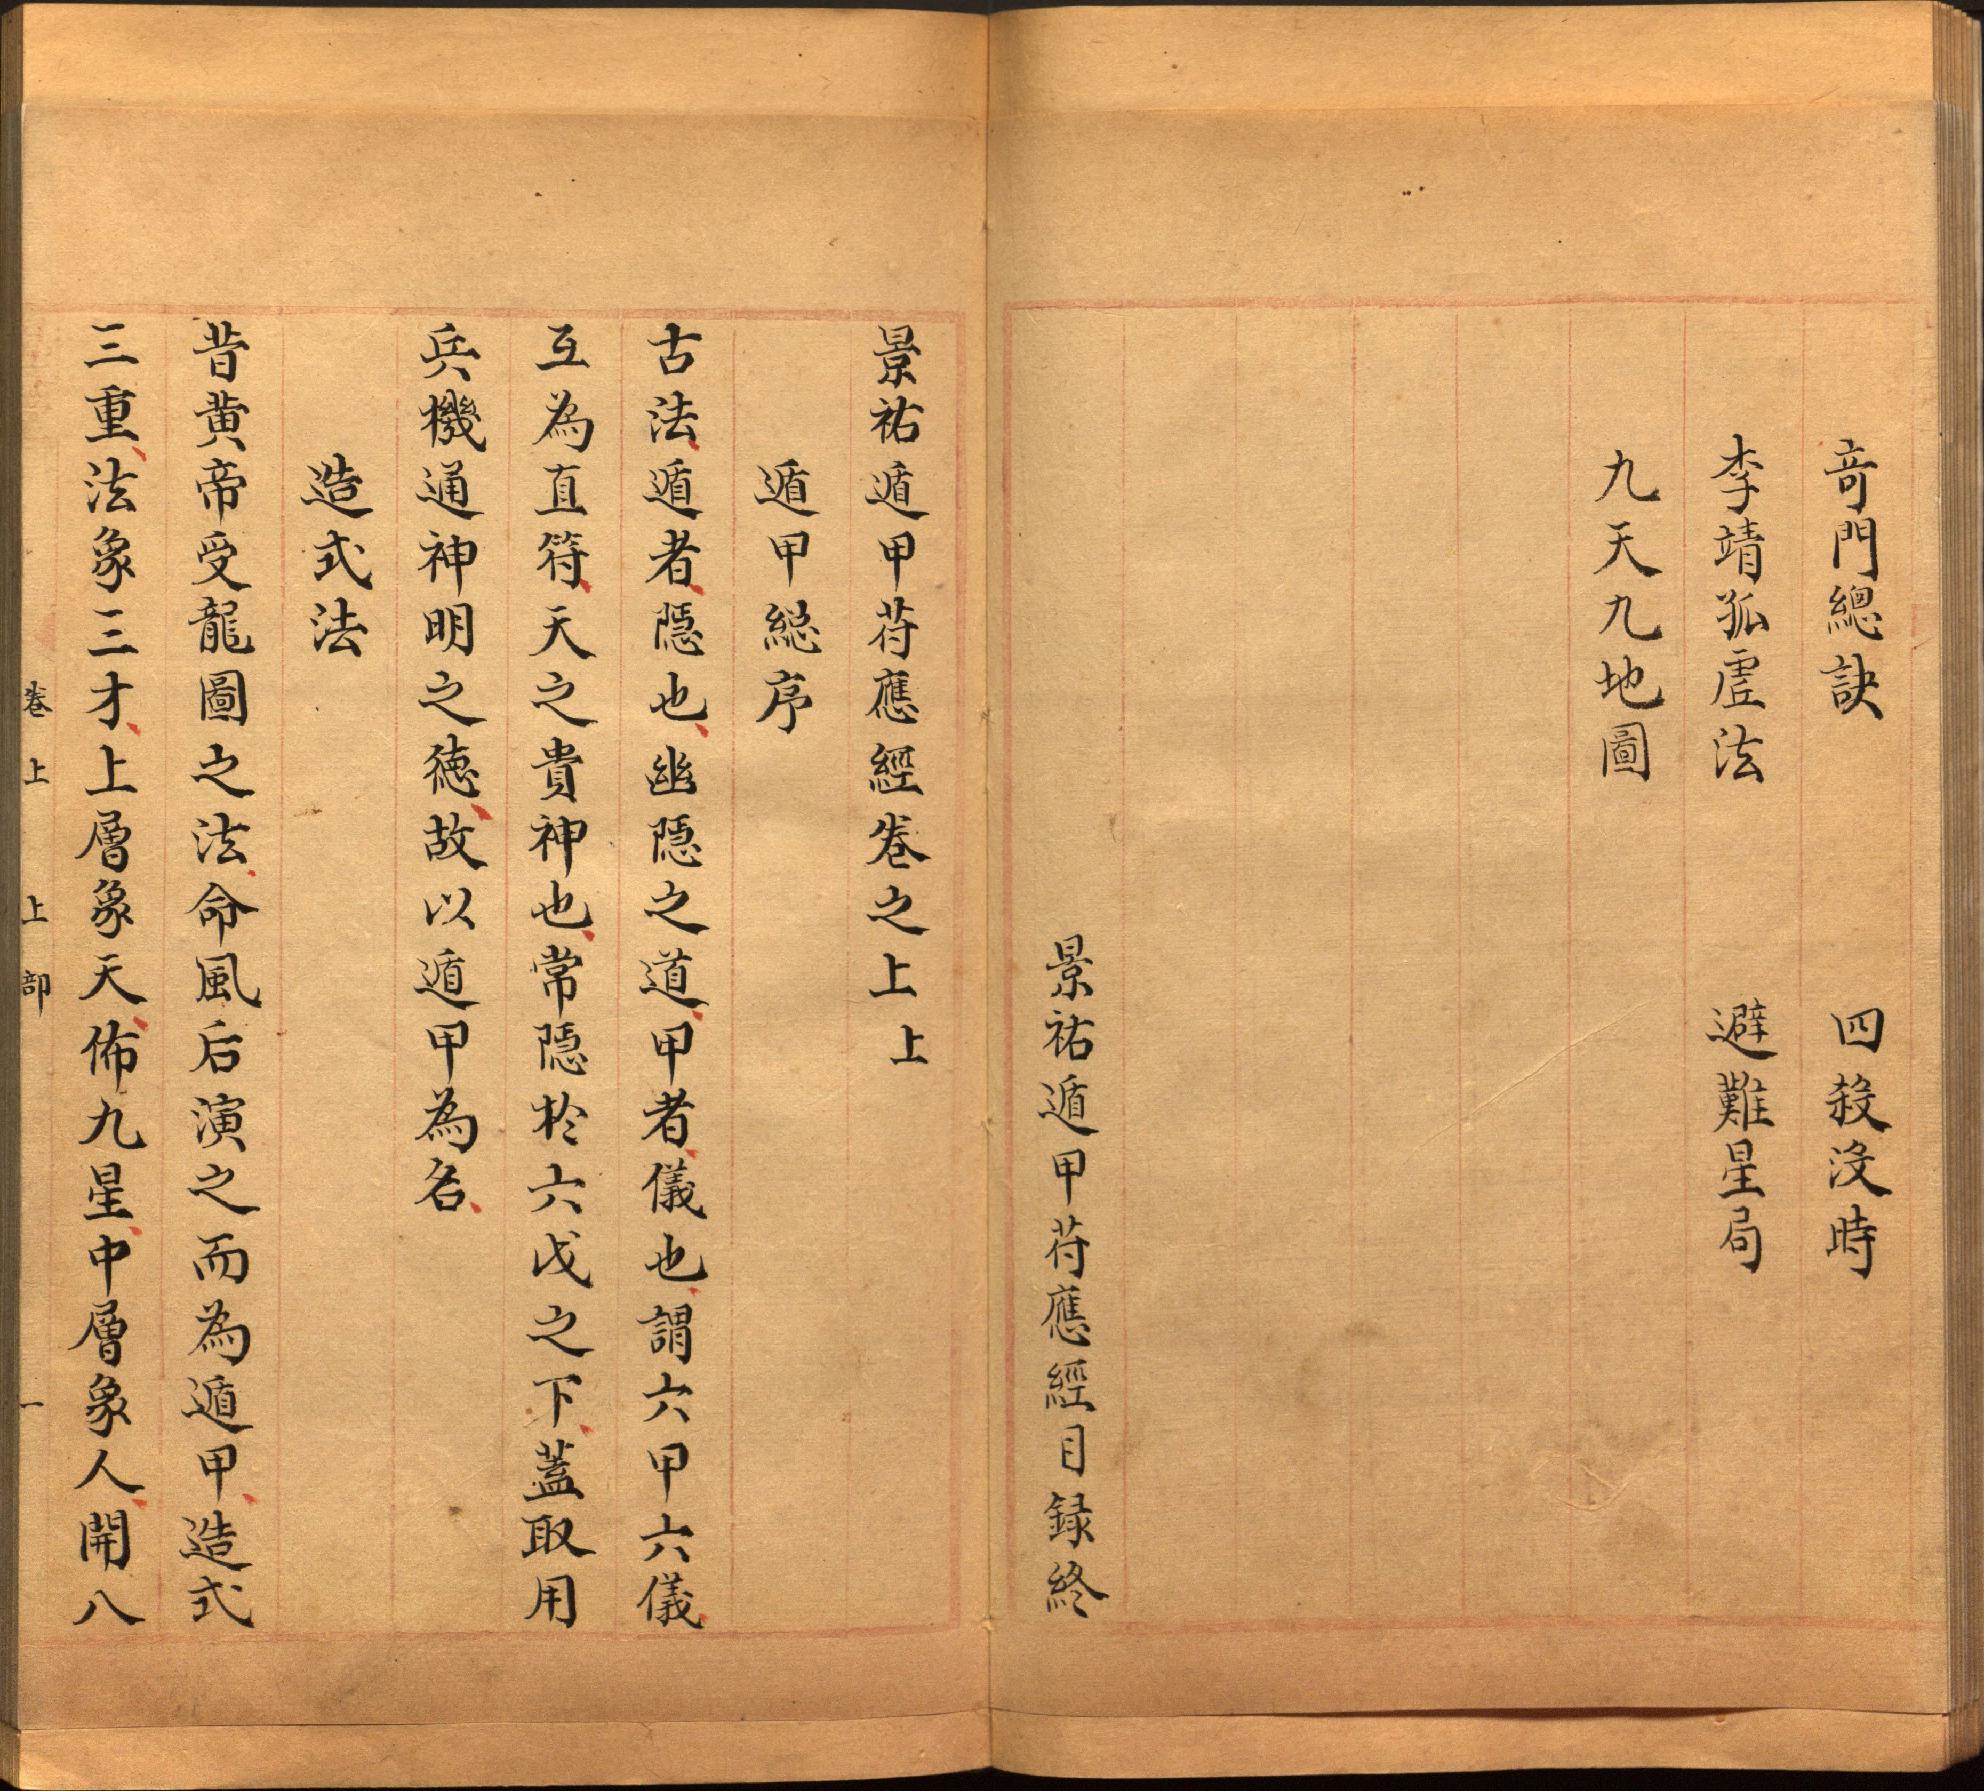 竒門總訣 四殺沒時
李靖孤虛法 避難星局
九天九地圖
景祐遁甲苻應經目録終
景祐遁甲苻應經卷之上上
遁甲総序
古法、遁者、隱也、幽隱之道、甲者、儀也、謂六甲六儀、
互為直符、天之貴神也、常隱於六戊之下、蓋取用
兵機通神明之德、故以遁甲為名、
造式法
昔黄帝受龍圖之法、命風后演之而為遁甲、造式
三重、法象三才、上層象天、佈九星、中層象人、開八
卷上 上部 一